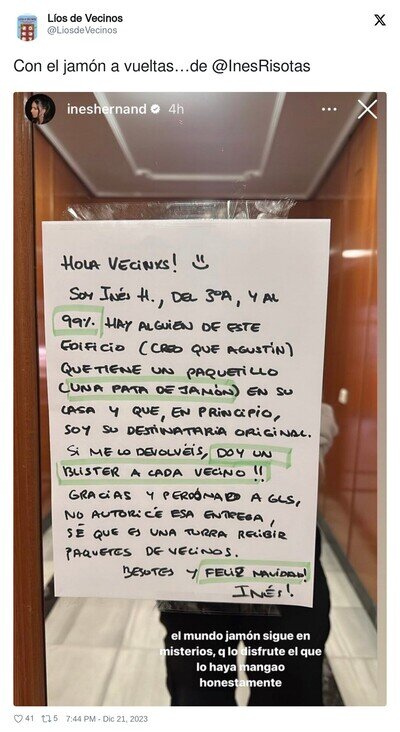 Líos de Vecinos
@LiosdeVecinos
X
Con el jamón a vueltas…de @InesRisotas
ineshernand 4h
HOLA VECINXS! :)
SOY INÉS H., DEL 3ºA, Y AL
99% HAY ALGUIEN DE ESTE
EDIFICIO (CREO QUE AGUSTÍN)
QUE TIENE UN PAQUETILLO
(UNA PATA DE JAMÓN) EN SU
CASA Y QUE, EN PRINCIPIO,
SOY SU DESTINATARIA ORIGINAL.
SI ME LO DEVOLVÉIS, DOY UN
BLISTER A CADA VECINO!!
GRACIAS Y PERDONAD A GLS,
NO AUTORICÉ ESA ENTREGA,
SÉ QUE ES UNA TURRA RECIBIR
PAQUETES DE VECINOS.
BESOTES Y FELIZ NAVIDAD!
INÉS!
el mundo jamón sigue en
misterios, q lo disfrute el que
lo haya mangao
honestamente
41 5 7:44 PM - Dic 21, 2023